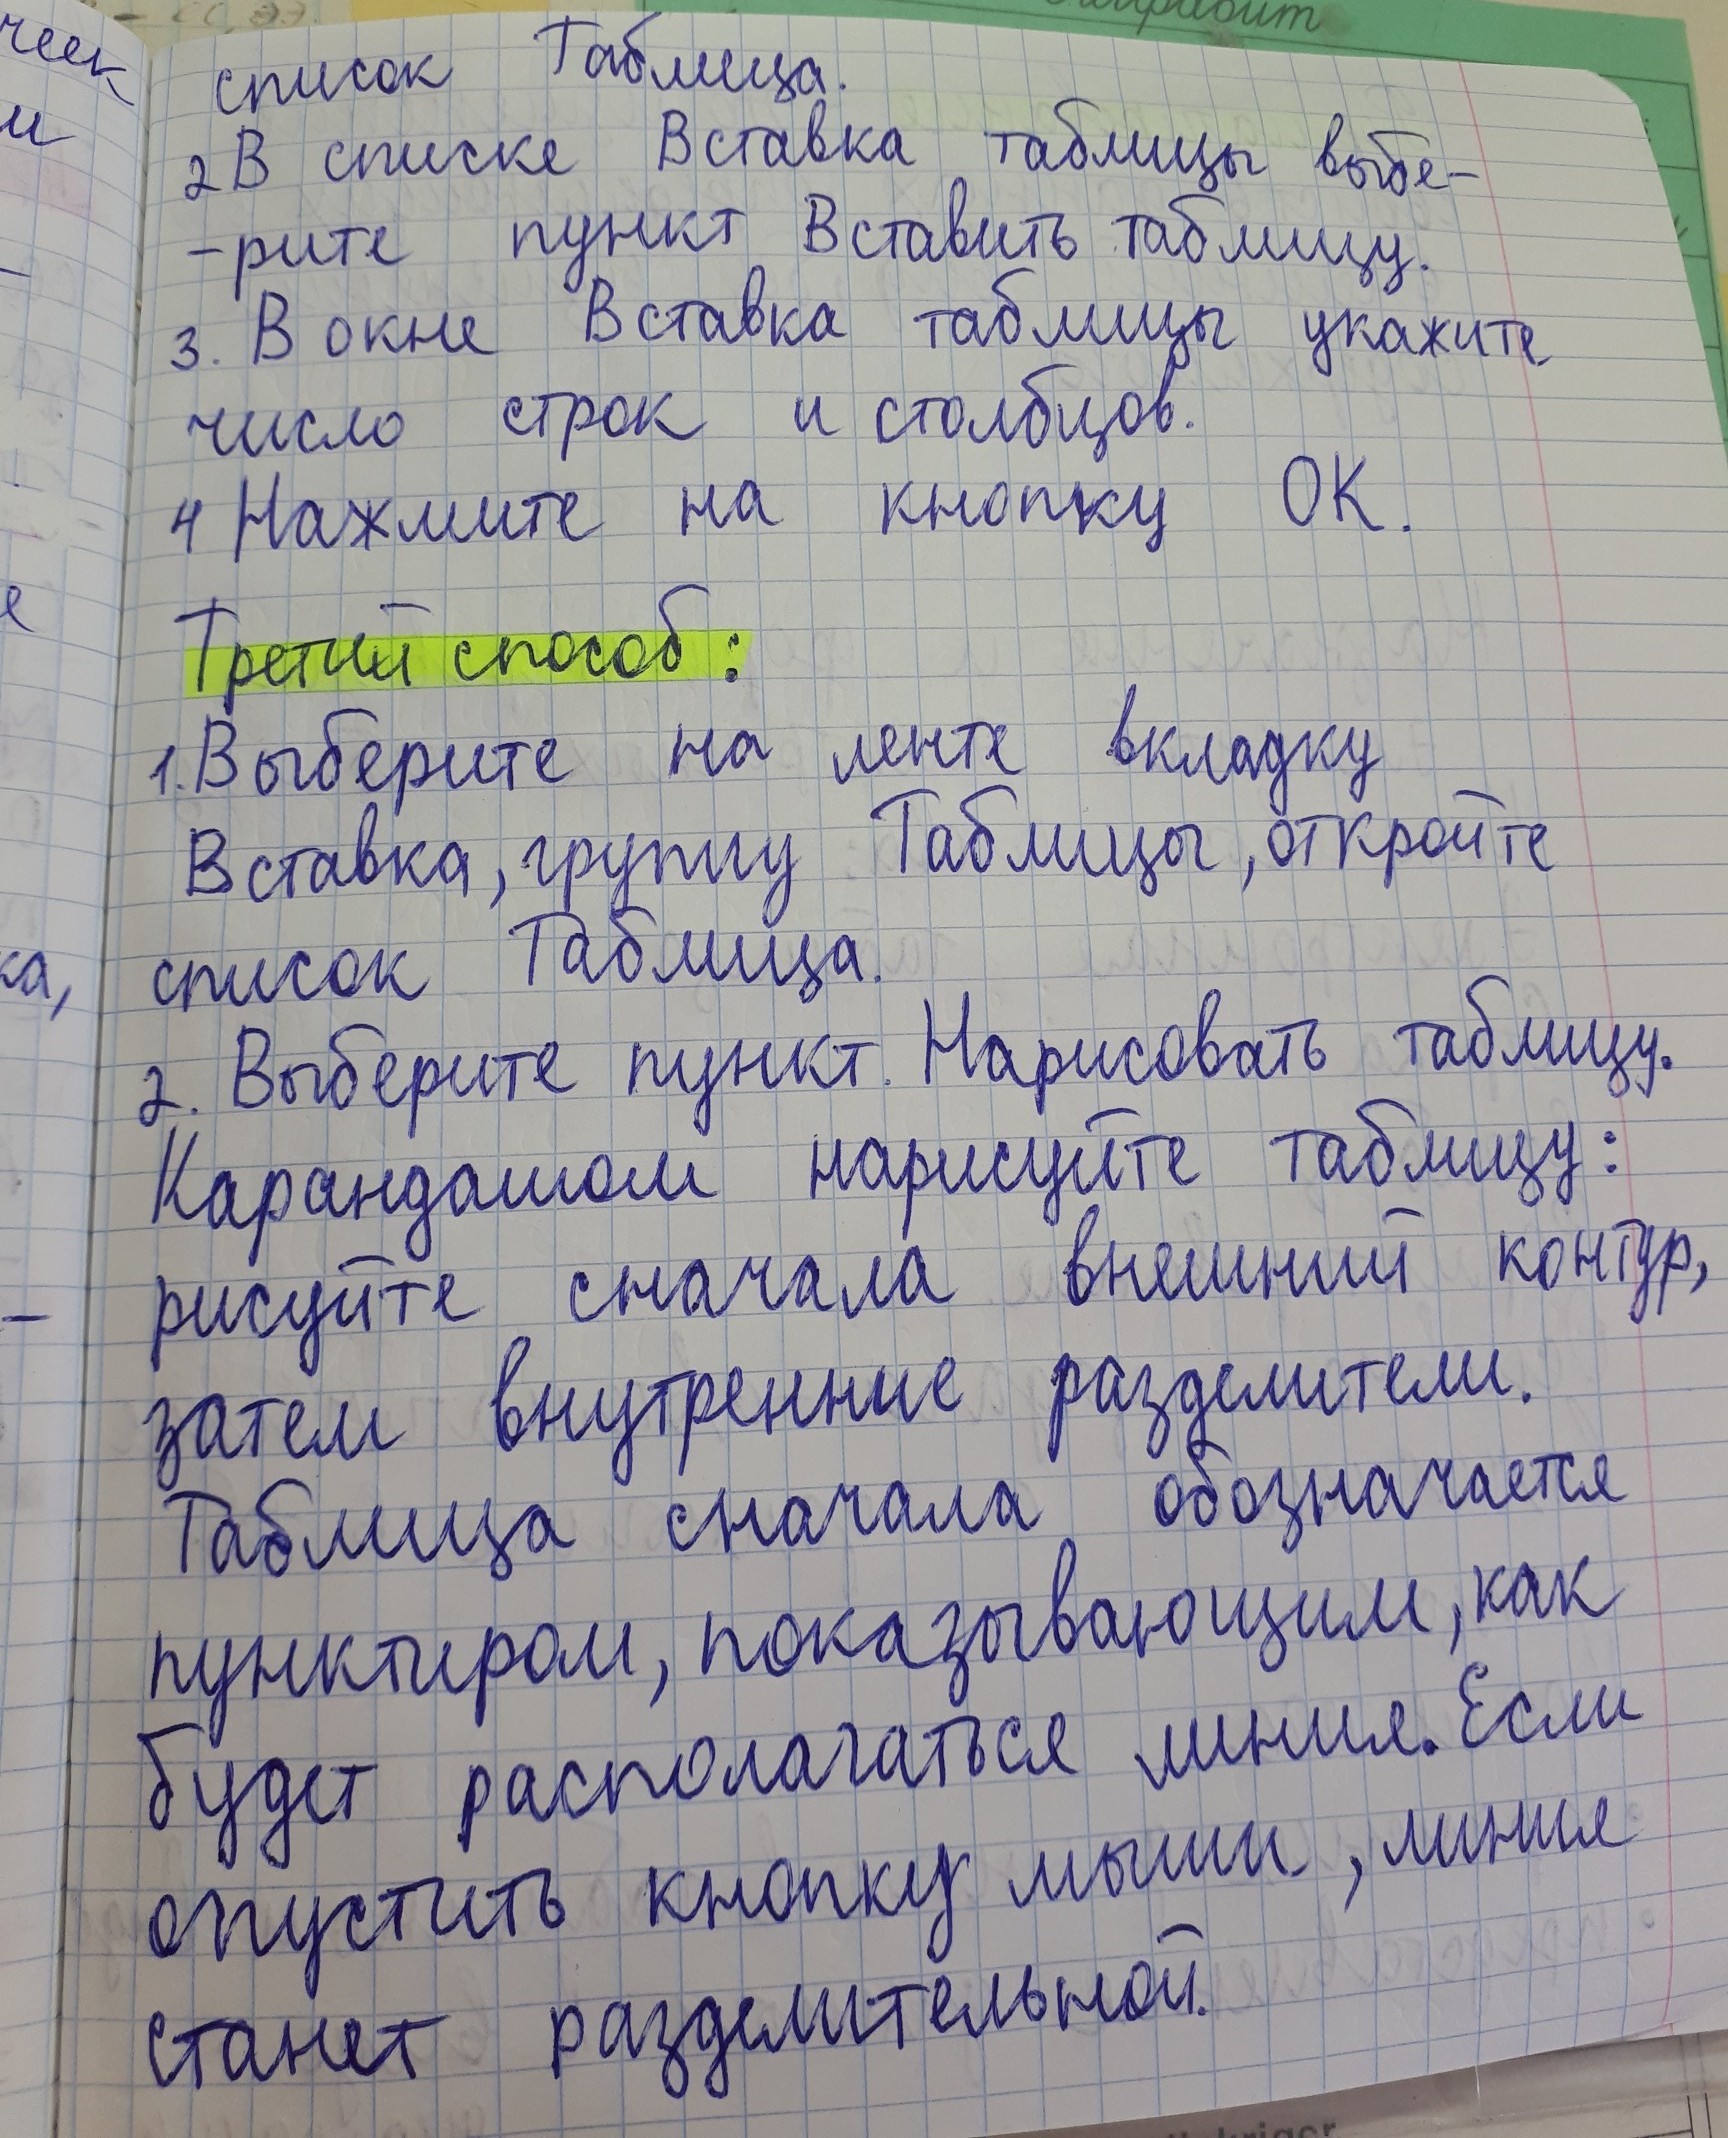 список Таблица.
2 В списке Вставка таблицы выбе-
-рите пункт Вставить таблицу.
3. В окне Вставка таблицы укажите
число строк и столбцов.
4 Нажмите на кнопку ОК.
Третий способ:
1. Выберите на ленте вкладку
Вставка, группу Таблицы, откройте
список Таблица.
2. Выберите пункт. Нарисовать таблицу.
Карандашом нарисуйте таблицу:
рисуйте сначала внешний контур,
затем внутренние разделители.
Таблица сначала обозначается
пунктиром, показывающим, как
будет располагаться линия. Если
опустить кнопку мыши, линия
станет разделительной.